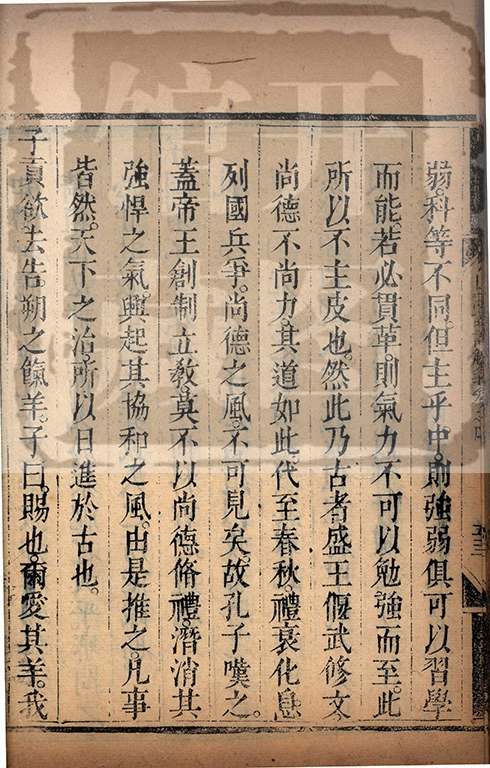 弱。科等不同。但主乎中。則強弱俱可以習學
而能。若必貫革。則氣力不可以勉強而至。此
所以不主皮也。然此乃古者盛王偃武修文
尚德不尚力。其道如此。代至春秋禮衰化息
列國兵爭。尚德之風。不可見矣。故孔子嘆之。
蓋帝王創制立教。莫不以尚德脩禮。潛消其
強悍之氣。興起其協和之風。由是推之。凡事
皆然。天下之治。所以日進於古也。
子貢欲去告朔之餼羊。子曰。賜也。爾愛其羊。我